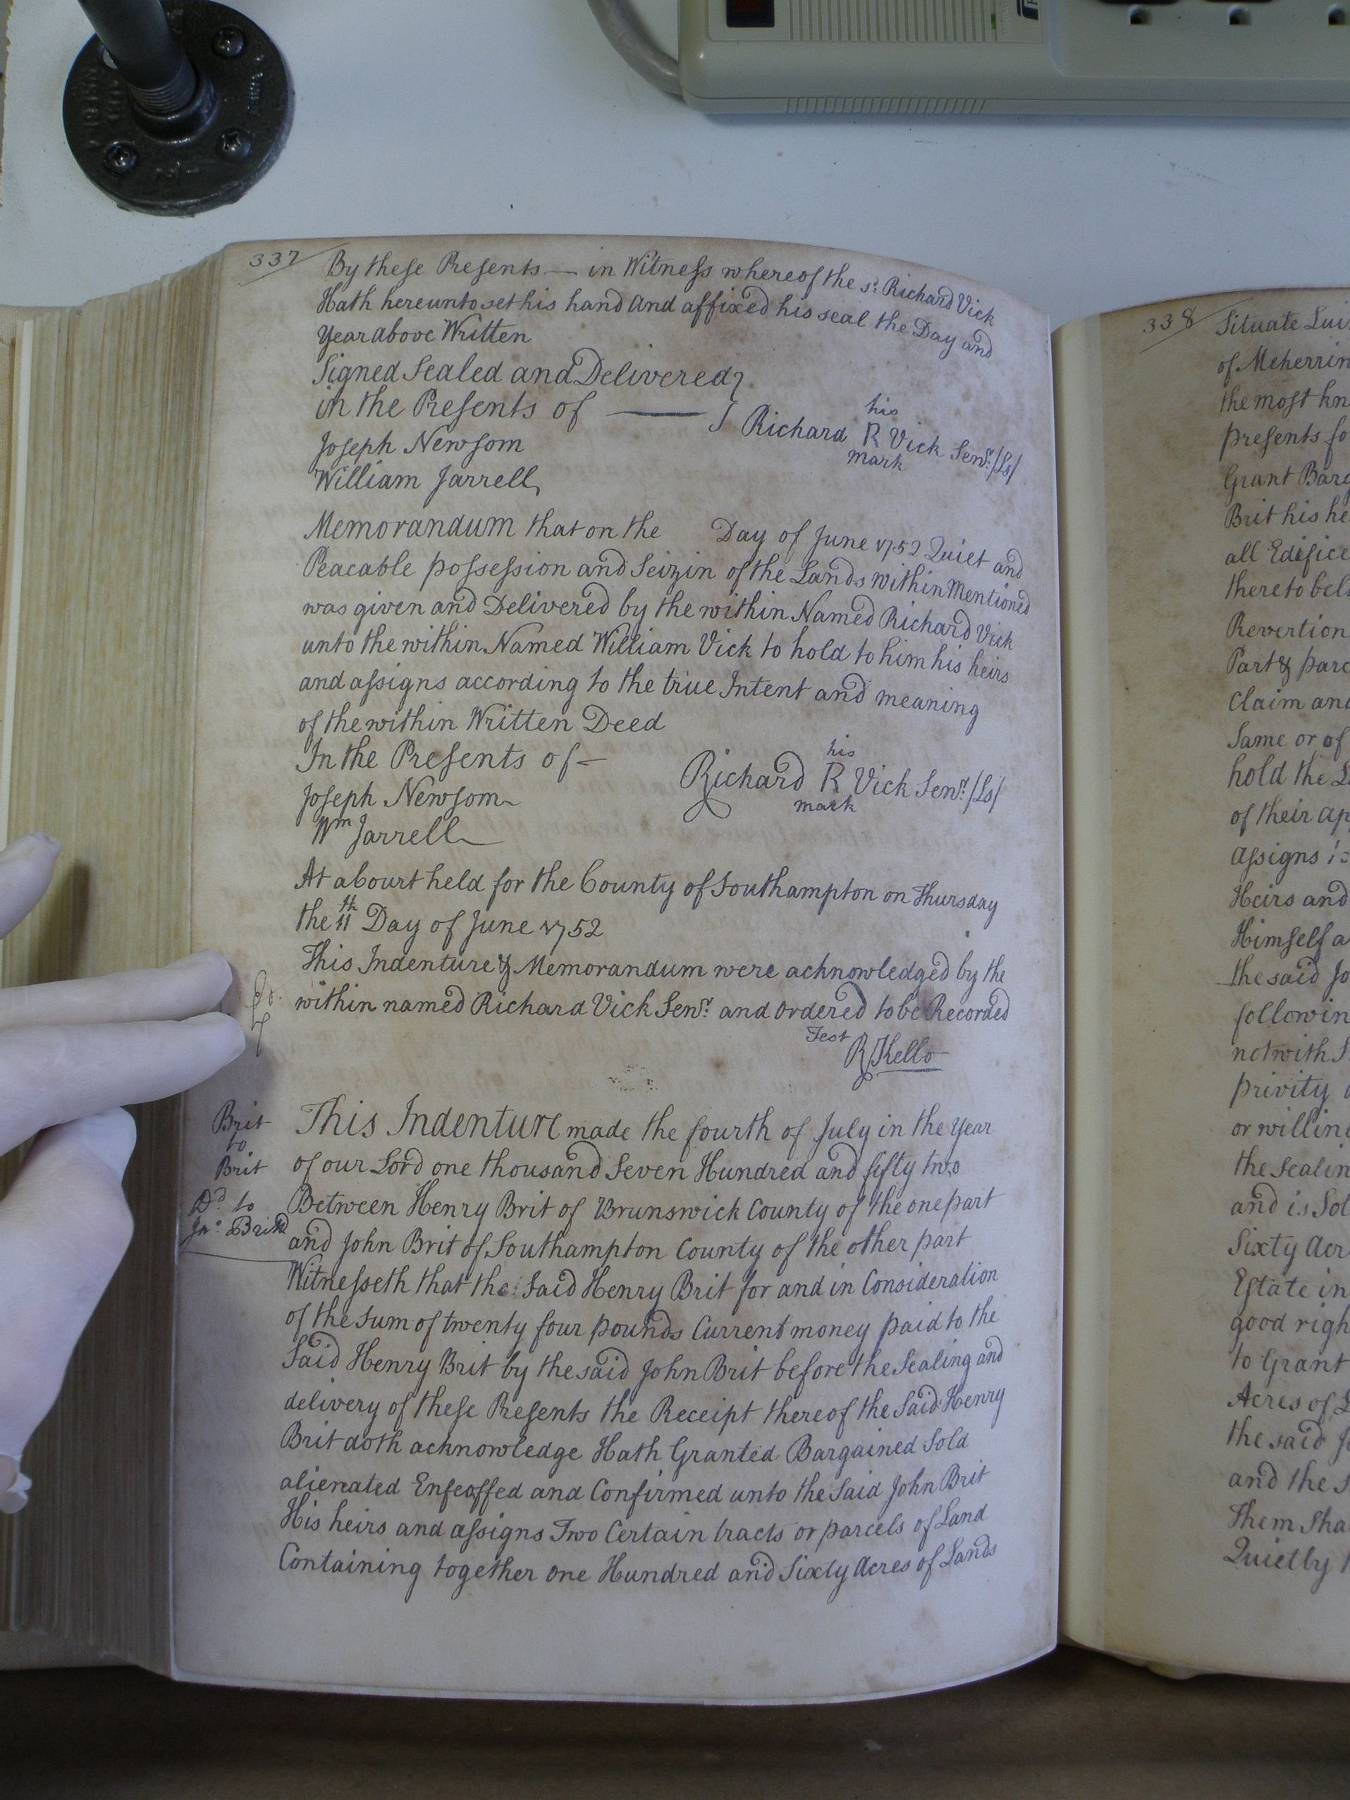 337
By these Presents — in Witness whereof the sd. Richard Vick
Hath hereunto set his hand and affixed his seal the Day and
Year above Written
Signed Sealed and Delivered
in the Presents of —
his
Richard R Vick Senr. /Ls/
mark
Joseph Newsom
William Jarrell
Memorandum that on the Day of June 1752 Quiet and
Peacable possession and Seizin of the Lands within Mentioned
was given and Delivered by the within Named Richard Vick
unto the within Named William Vick to hold to him his heirs
and assigns according to the true Intent and meaning
of the within Written Deed
In the Presents of —
his
Richard R Vick Senr. /Ls/
mark
Joseph Newsom
Wm Jarrell
At a Court held for the County of Southampton on Thursday
the 11th Day of June 1752
This Indenture & Memorandum were acknowledged by the
within named Richard Vick Senr. and ordered to be Recorded
Test
R Kello
Brit
to
Brit
Dd to
Jno. Britt
This Indenture made the fourth of July in the Year
of our Lord one thousand Seven Hundred and fifty two
Between Henry Brit of Brunswick County of the one part
and John Brit of Southampton County of the other part
Witnesseth that the Said Henry Brit for and in Consideration
of the Sum of twenty four pounds Current money paid to the
Said Henry Brit by the said John Brit before the Sealing and
delivery of these Presents the Receipt thereof the Said Henry
Brit doth acknowledge Hath Granted Bargained Sold
alienated Enfeoffed and Confirmed unto the Said John Brit
His heirs and assigns Two Certain tracts or parcels of Land
Containing together one Hundred and Sixty Acres of Lands
338
Situate
of Meherrin
the most
presents
Grant
Brit his
all
thereto
Revertion
Part & 
Claim and
Same or of
hold the
of their
Assigns
Heirs and
Himself
the said
following
notwith
privity
or willing
the Sealing
and is
Sixty
Estate in
good
to Grant
Acres of
the said
and the
Them
Quietly